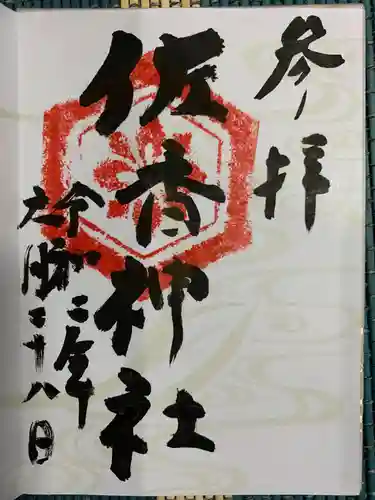 参拝
佐香神社
令和二年
二十八日